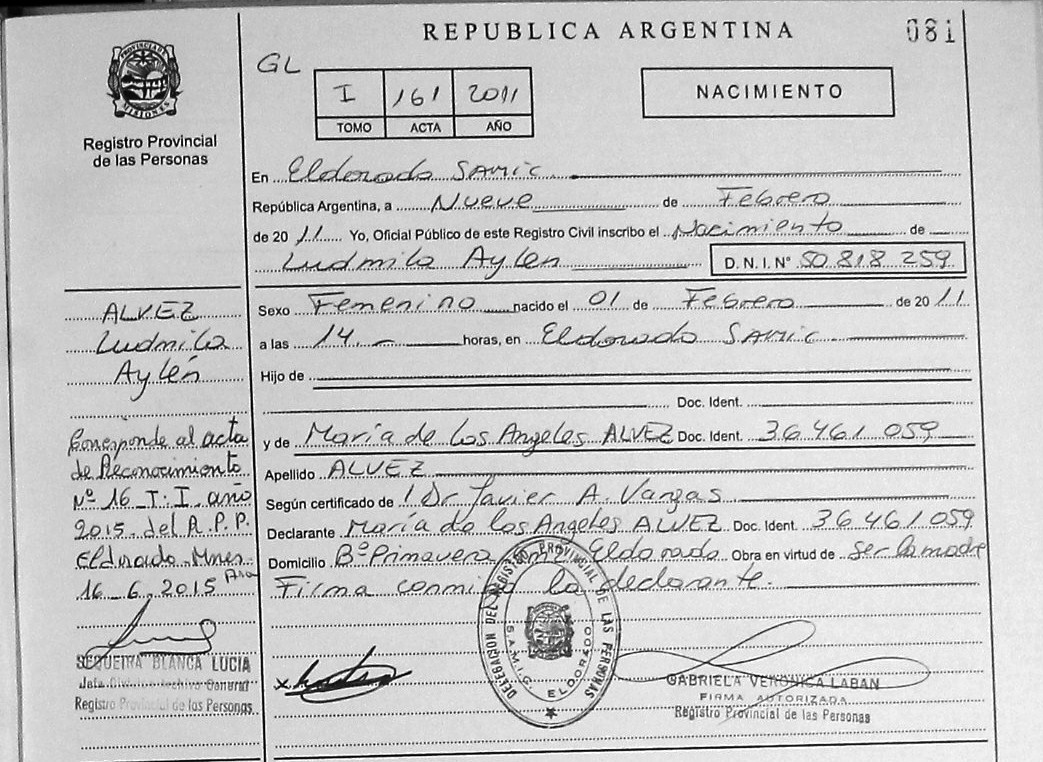 REPUBLICA ARGENTINA
081
PROVINCIA DE MISIONES
Registro Provincial
de las Personas
GL
I 161 2011
TOMO ACTA AÑO
NACIMIENTO
En Eldorado SAMIC
República Argentina, a Nueve de Febrero
de 2011 Yo, Oficial Público de este Registro Civil inscribo el Nacimiento de
Ludmila Aylen D. N. I. Nº 50.818 259
Sexo Femenino nacido el 01 de Febrero de 2011
a las 14.- horas, en Eldorado SAMIC
Hijo de
Doc. Ident.
y de María de Los Angeles ALVEZ Doc. Ident. 36 461 059
Apellido ALVEZ
Según certificado de l Dr Javier A. Vargas
Declarante María de los Angeles ALVEZ Doc. Ident. 36 461 059
Domicilio Bº Primavera Eldorado Obra en virtud de ser la madre
Firma conmigo la declarante.
ALVEZ
Ludmila
Aylén
Corresponde al acta
de Reconocimiento
Nº 16 T: I año
2015 del R.P.P.
Eldorado Mnes.
16_6_2015
SEQUEIRA BLANCA LUCIA
Registro Provincial de las Personas
x
DELEGACION DEL REGISTRO PROVINCIAL DE LAS PERSONAS
S.A.M.I.C. ELDORADO
GABRIELA VERONICA LABAN
FIRMA AUTORIZADA
Registro Provincial de las Personas